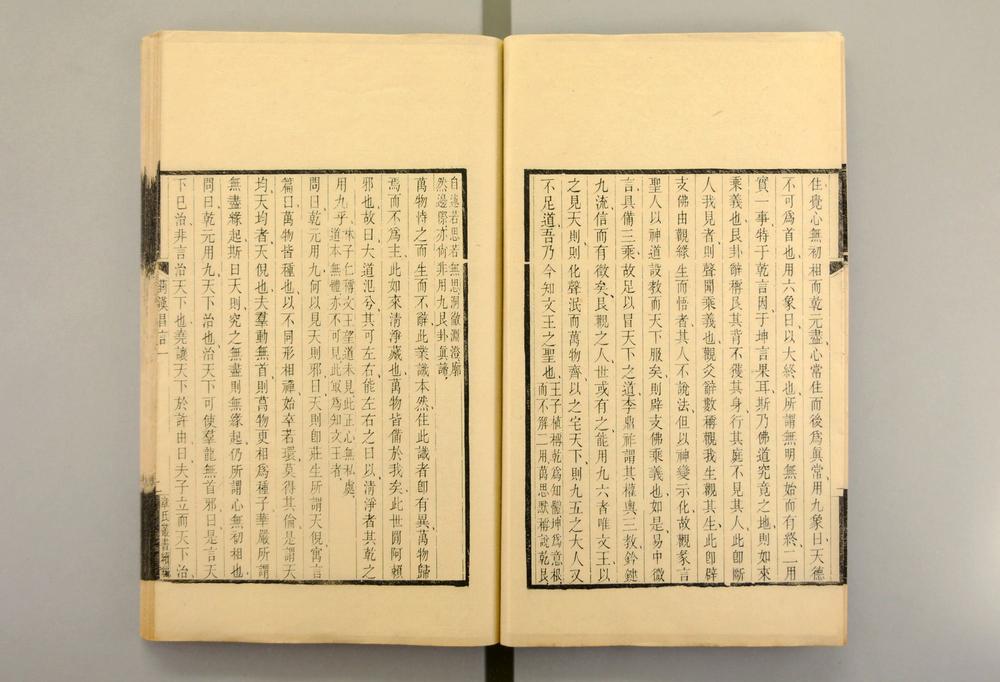 住覺心無初相而乾元盡心常住而後爲眞常用九象曰天德
不可爲首也用六象曰以大終也所謂無明無始而有終二用
實一事特于乾言因于坤言果耳斯乃佛道究竟之地則如來
乘義也艮卦辭稱艮其背不獲其身行其庭不見其人此卽斷
人我見者則聲聞乘義也觀爻辭數稱觀我生觀其生此卽辟
支佛由觀緣生而悟者其人不說法但以神變示化故觀彖言
聖人以神道設教而天下服矣則辟支佛乘義也如是易中微
言具備三乘故足以冒天下之道李鼎祚謂其權輿三教鈐鍵
九流信而有徵矣艮觀之人世或有之能用九六者唯文王以
之見天則則化聲泯而萬物齊以之宅天下則九五之大人又
不足道吾乃今知文王之聖也
王子植稱乾爲知體坤爲意根
而不解二用萬思默稱說乾艮
自邊若思若無思洞徹淵澄廓
然邊際亦尙非用九艮卦眞諦
萬物恃之而生而不辭此業識本然住此識者卽有異萬物歸
焉而不爲主此如來清淨藏也萬物皆備於我矣此世間阿賴
邪也故曰大道氾兮其可左右能左右之曰以清淨者其乾之
用九乎
味子仁稱文王望道未見此正心無私處
道本無體亦不可見此最爲知文王者
問曰乾元用九何以見天則邪曰天則卽莊生所謂天倪寓言
篇曰萬物皆種也以不同形相禪始卒若環莫得其倫是謂天
均天均者天倪也夫羣動無首則萬物更相爲種子華嚴所謂
無盡緣起斯曰天則究之無盡則無緣起仍所謂心無初相也
問曰乾元用九天下治也治天下可使羣龍無首邪曰是言天
下已治非言治天下也堯讓天下於許由曰夫子立而天下治
菿漢昌言一
章氏叢書續編